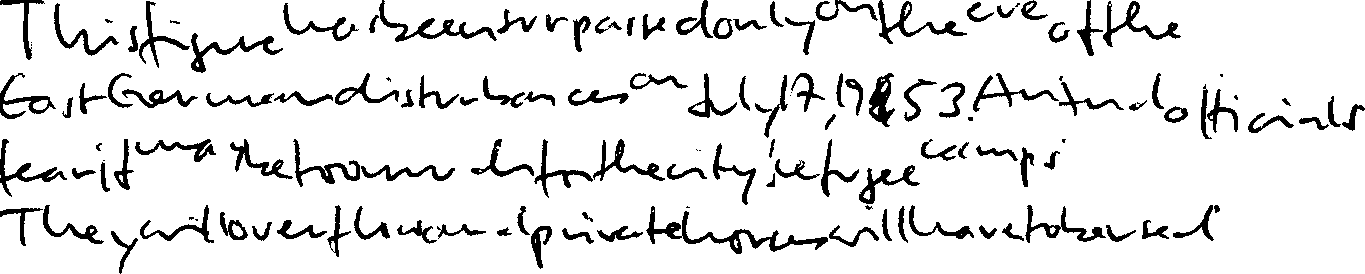 This figure has been surpassed only on the eve of the
East German disturbances on July 17, 1953. And officials
fear it may be too much for the city's refugee camps
They will overflow and private homes will have to be used